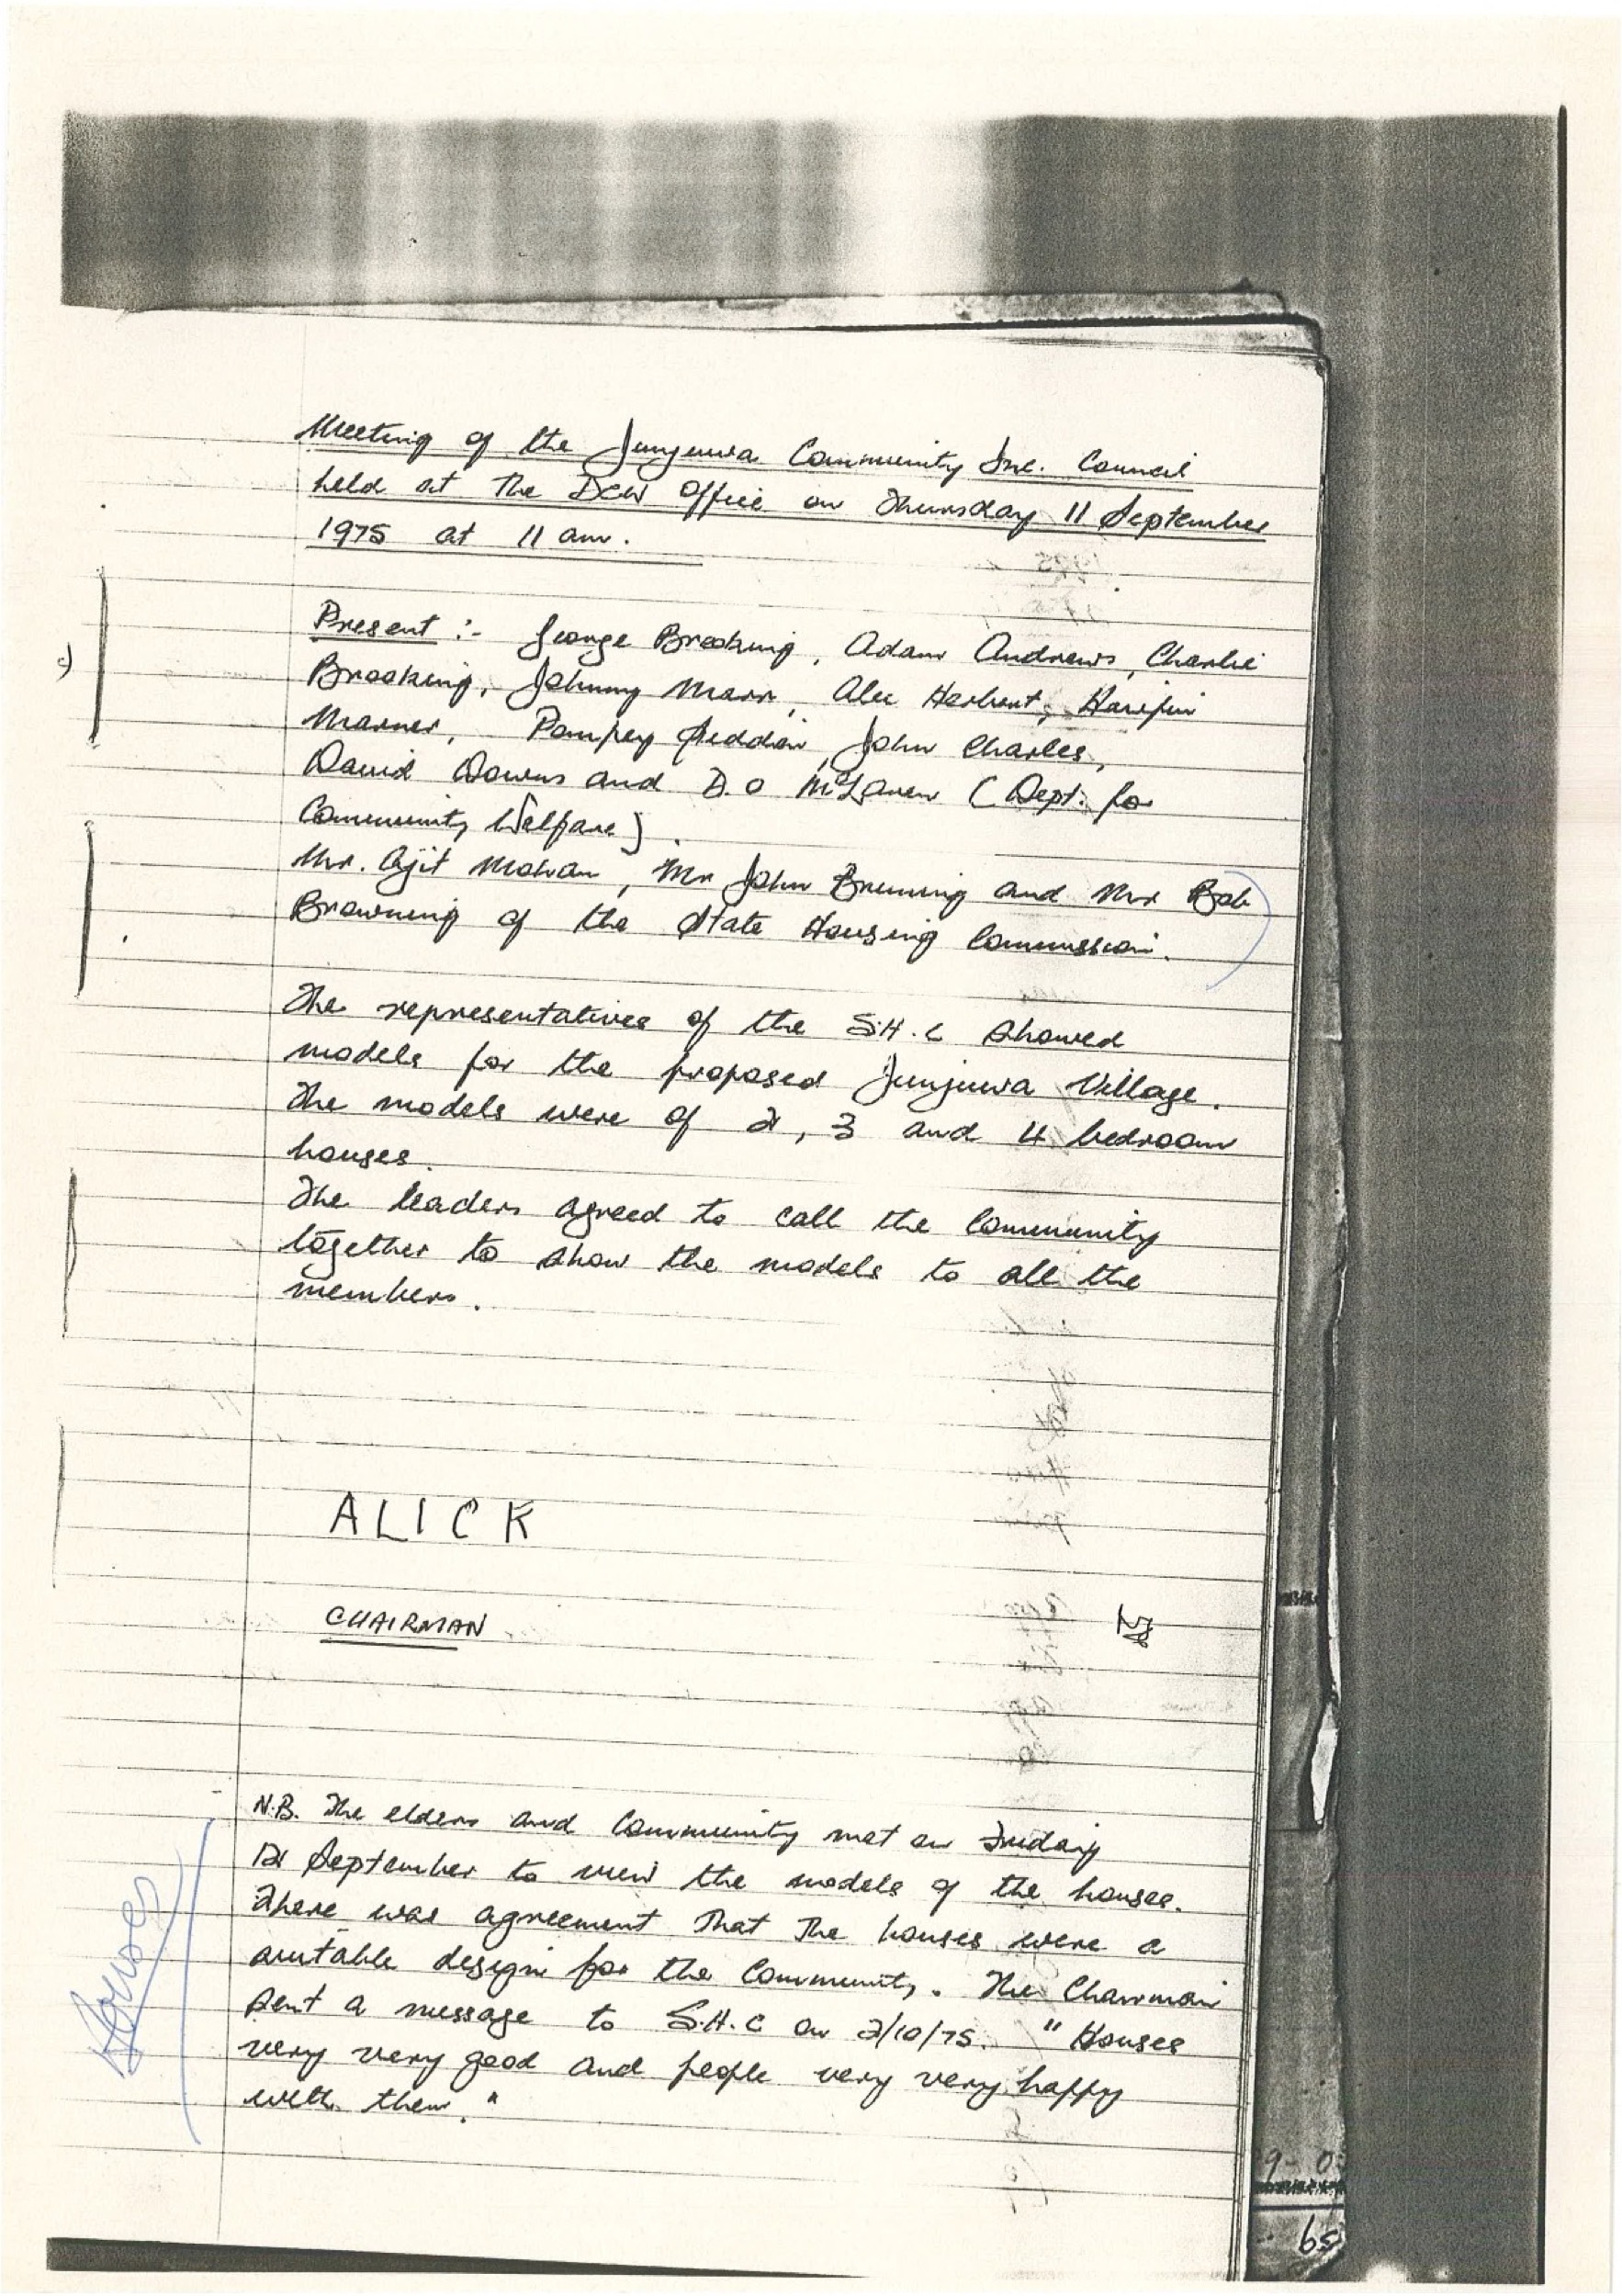 Meeting of the Junjuwa Community Inc. Council
held at the DCW Office on Thursday 11 September
1975 at 11 am.
Present :- George Brooking, Adam Andrews, Charlie
Brooking, Johnny Marr, Alec Herbert, 
Marner, Pompey John Charles,
David Downs and D.O McLaren (Dept. for
Community Welfare).
Mr. Ajit Mohan, Mr John Bruning and Mr Bob
Browning of the State Housing Commission.
The representatives of the S.H.C showed
models for the proposed Junjuwa Village.
The models were of 2, 3 and 4 bedroom
houses.
The leaders agreed to call the Community
together to show the models to all the
members.
ALICK
CHAIRMAN
N.B. The elders and Community met on Friday
12 September to view the models of the houses.
There was agreement that the houses were a
suitable design for the Community. The Chairman
sent a message to S.H.C on 2/10/75. "Houses
very very good and people very very happy
with them."
Houses
65